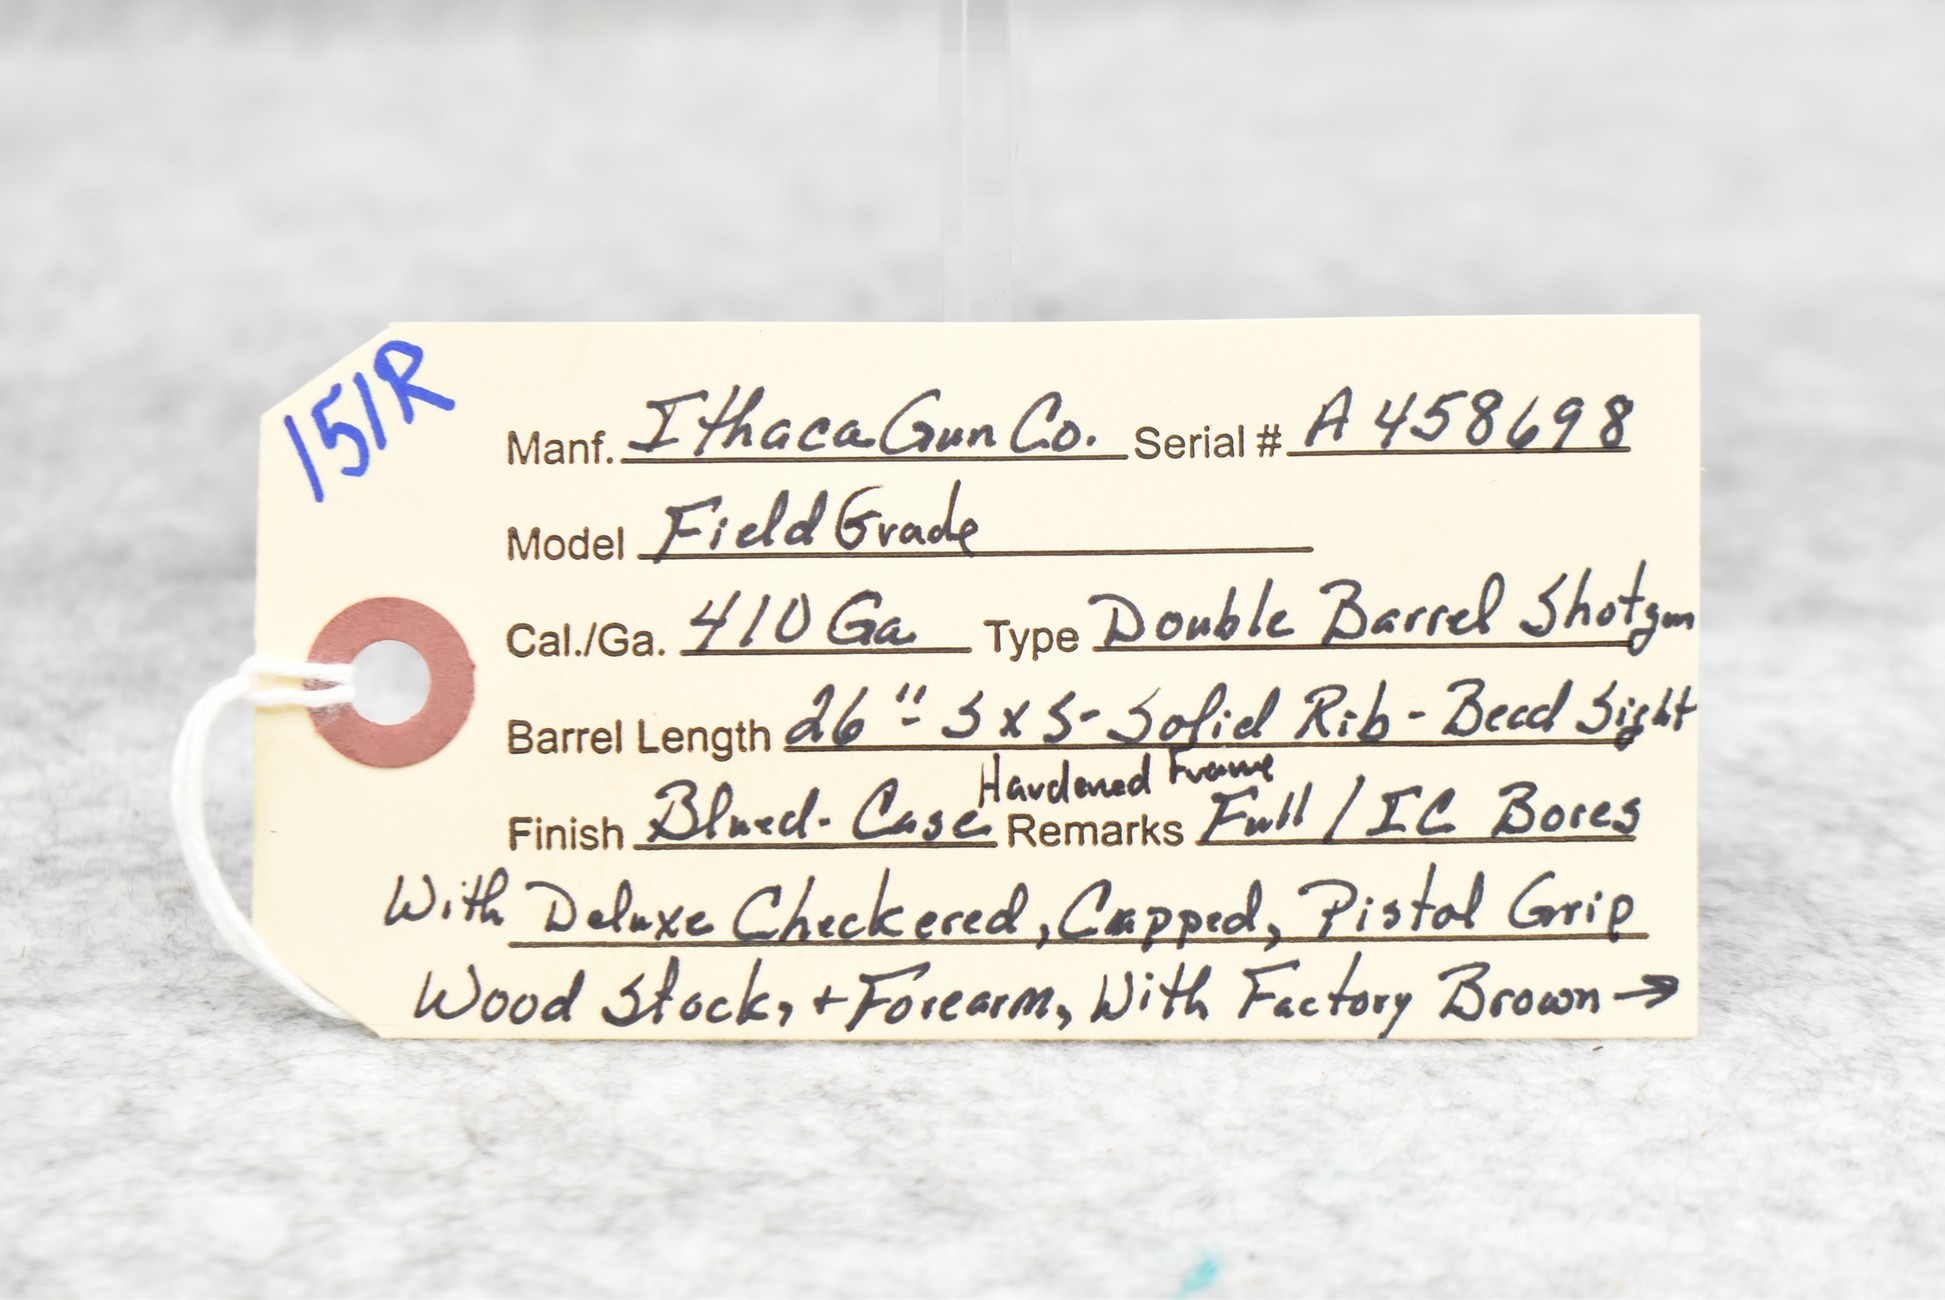 151R
Manf. Ithaca Gun Co. Serial # A458698
Model Field Grade
Cal./Ga. 410 Ga Type Double Barrel Shotgun
Barrel Length 26"- S x S - Solid Rib - Bead Sight
Hardened Frame
Finish Blued - Case Remarks Full / IC Bores
With Deluxe Checkered, Capped, Pistol Grip
Wood Stock, + Forearm, With Factory Brown →